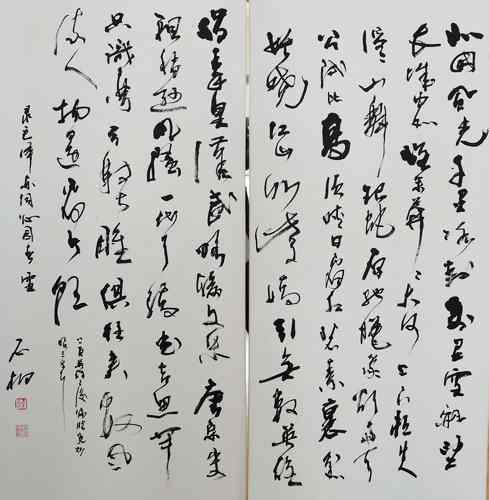 北国风光千里冰封万里雪飘望
长城内外惟余莽莽大河上下顿失
滔滔山舞银蛇原驰蜡象欲与天
公试比高须晴日看红装素裹分外
妖娆江山如此多娇引无数英雄
惜秦皇汉武略输文采唐宗宋
祖稍逊风骚一代天骄成吉思汗
只识弯弓射大雕俱往矣数风
流人物还看今朝
录毛泽东词沁园春雪